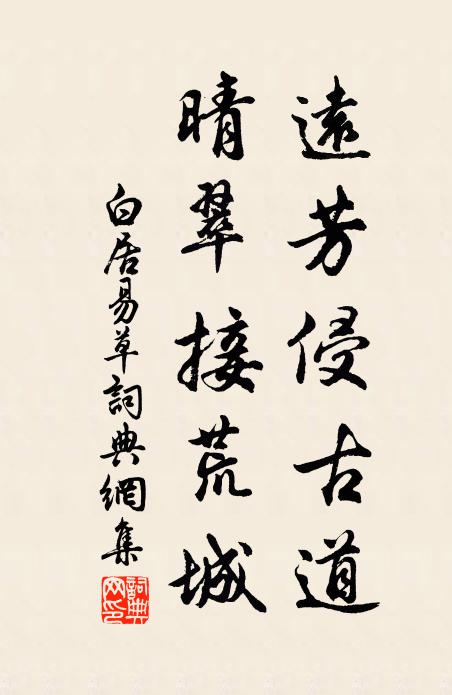 遠芳侵古道
晴翠接荒城
白居易草詞典網集
詞典網印